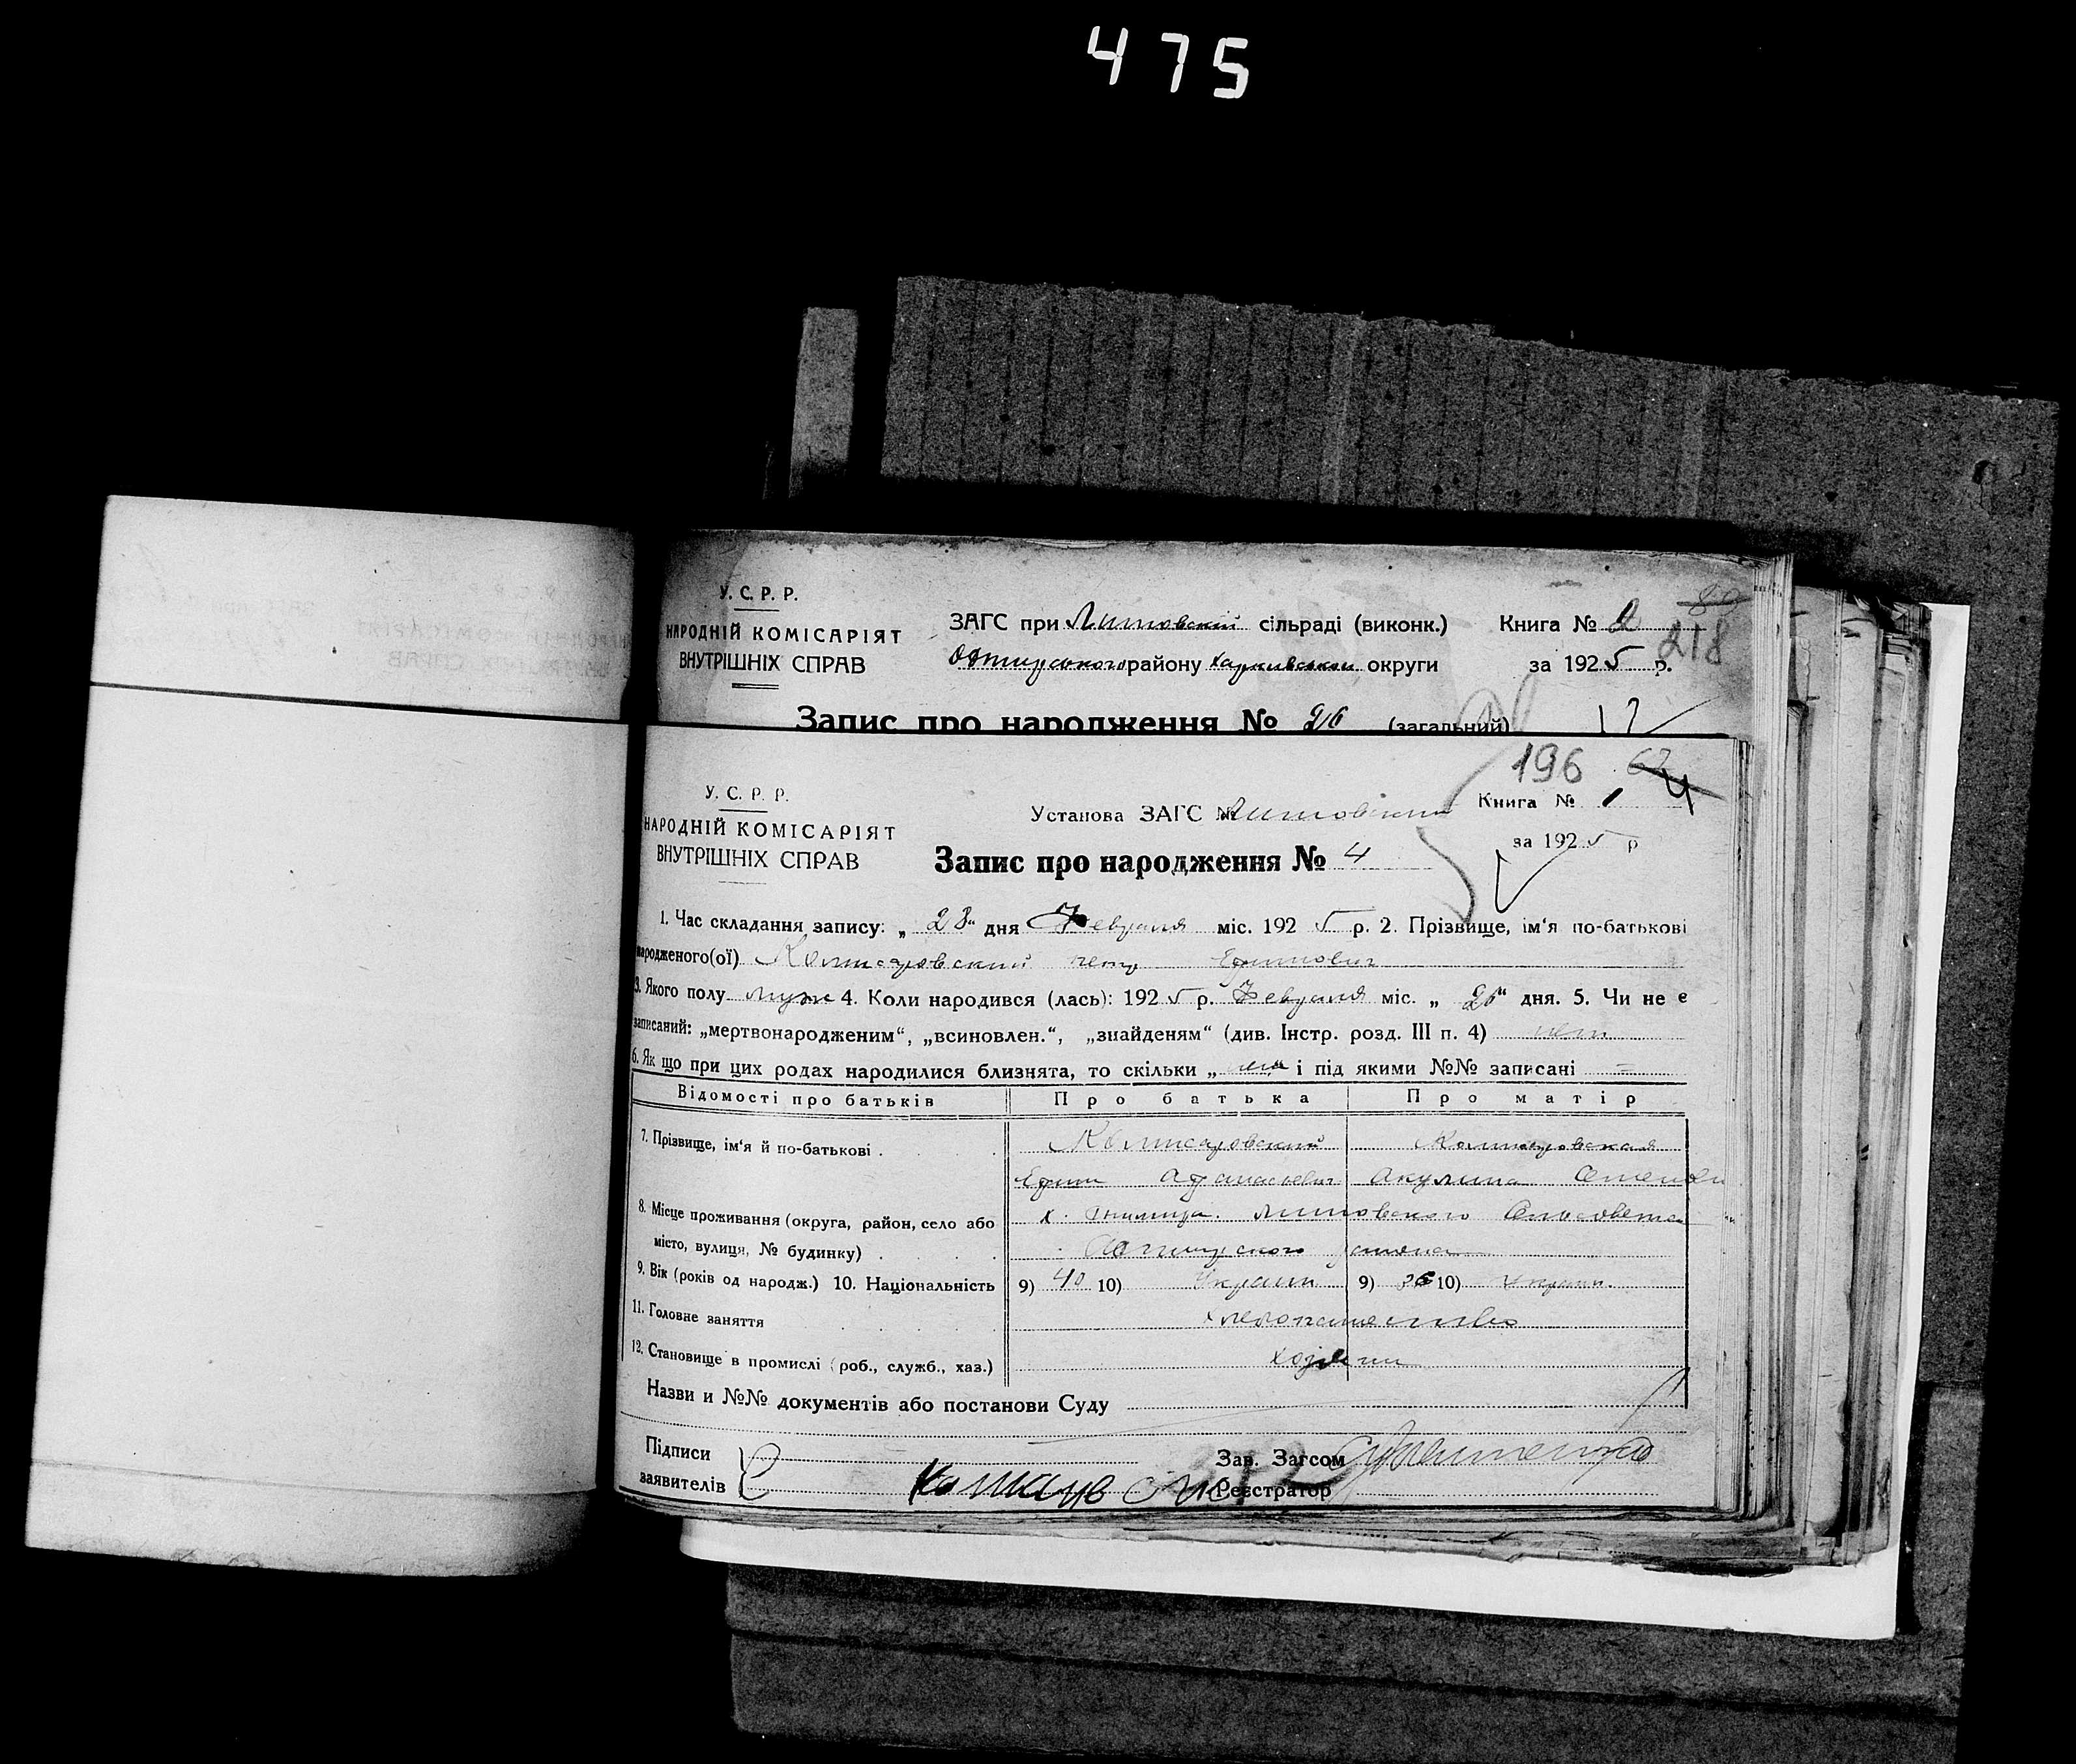 475
У. С. Р. Р.
НАРОДНІЙ КОМІСАРІЯТ
ВНУТРІШНІХ СПРАВ
ЗАГС при Литовский сільраді (виконк.)
району округи
Книга № 2
за 1925 р.
80
218
Запис про народження № 26 (загальний)
196
У. С. Р. Р.
НАРОДНІЙ КОМІСАРІЯТ
ВНУТРІШНІХ СПРАВ
Установа ЗАГС № Литовский
Книга № 1
за 1925 р
Запис про народження № 4
1. Час складання запису: „28“ дня Февраля міс. 1925 р. 2. Прізвище, ім'я по-батькові
народженого(ої) Комисаровский петр Ефимович
3. Якого полу муж 4. Коли народився (лась): 1925 р. Февраля міс. „26“ дня. 5. Чи не є
записаний: „мертвонародженим“, „всиновлен.“, „знайденям“ (див. Інстр. розд. III п. 4) нет
6. Як що при цих родах народилися близнята, то скільки „нет“ і під якими №№ записані =
Відомості про батьків Про батька Про матір
7. Прізвище, ім'я й по-батькові . Комисаровский Комисаровская
Ефим Афанасьевич Акулина Семенов
8. Місце проживання (округа, район, село або х. Литовского Сельсовета
місто, вулиця, № будинку) района
9. Вік (років од народж.) 10. Національність 9) 40 10) Украин 9) 36 10) Украин.
11. Головне заняття хлебопашество
12. Становище в промислі (роб., служб., хаз.) хозяин
Назви и №№ документів або постанови Суду
Підписи
заявителів
Зав. Загсом
Реєстратор